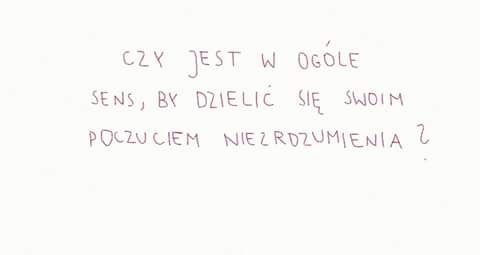 CZY JEST W OGÓLE
SENS, BY DZIELIĆ SIĘ SWOIM
POCZUCIEM NIEZROZUMIENIA?